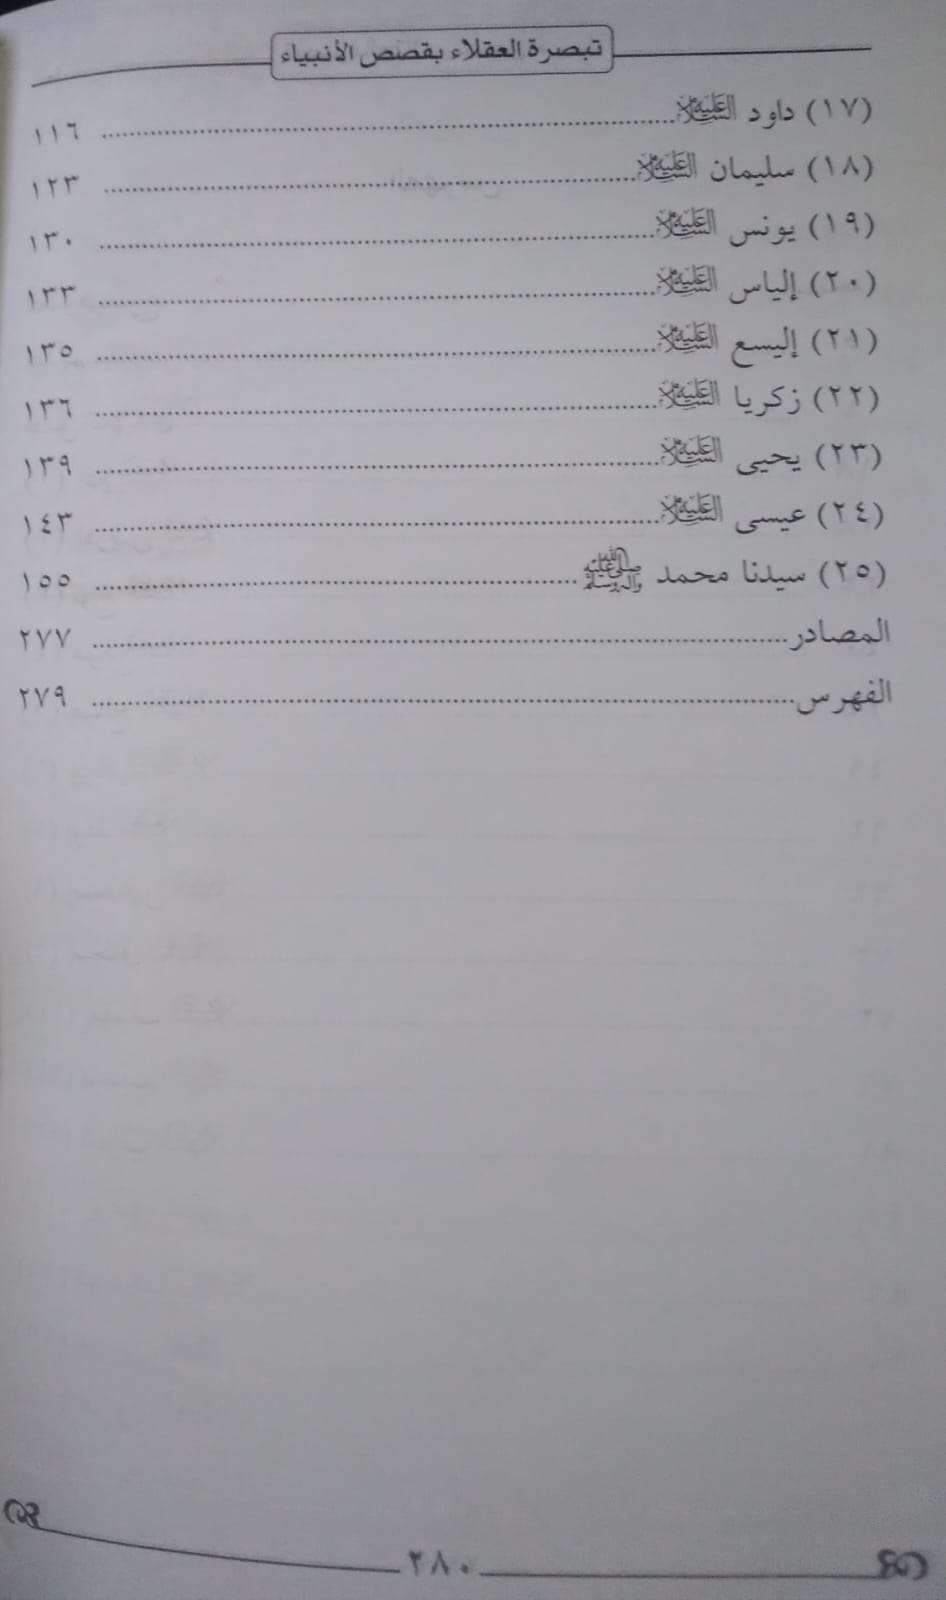 تبصرة العقلاء بقصص الأنبياء
(١٧) داود عليه السلام ............ ١١٦
(١٨) سليمان عليه السلام ............ ١٢٣
(١٩) يونس عليه السلام ............ ١٣٠
(٢٠) إلياس عليه السلام ............ ١٣٣
(٢١) إليسع عليه السلام ............ ١٣٥
(٢٢) زكريا عليه السلام ............ ١٣٦
(٢٣) يحيى عليه السلام ............ ١٣٩
(٢٤) عيسى عليه السلام ............ ١٤٣
(٢٥) سيدنا محمد صلى الله عليه وآله وسلم ............ ١٥٥
المصادر ............ ٢٧٧
الفهرس ............ ٢٧٩
٢٨٠